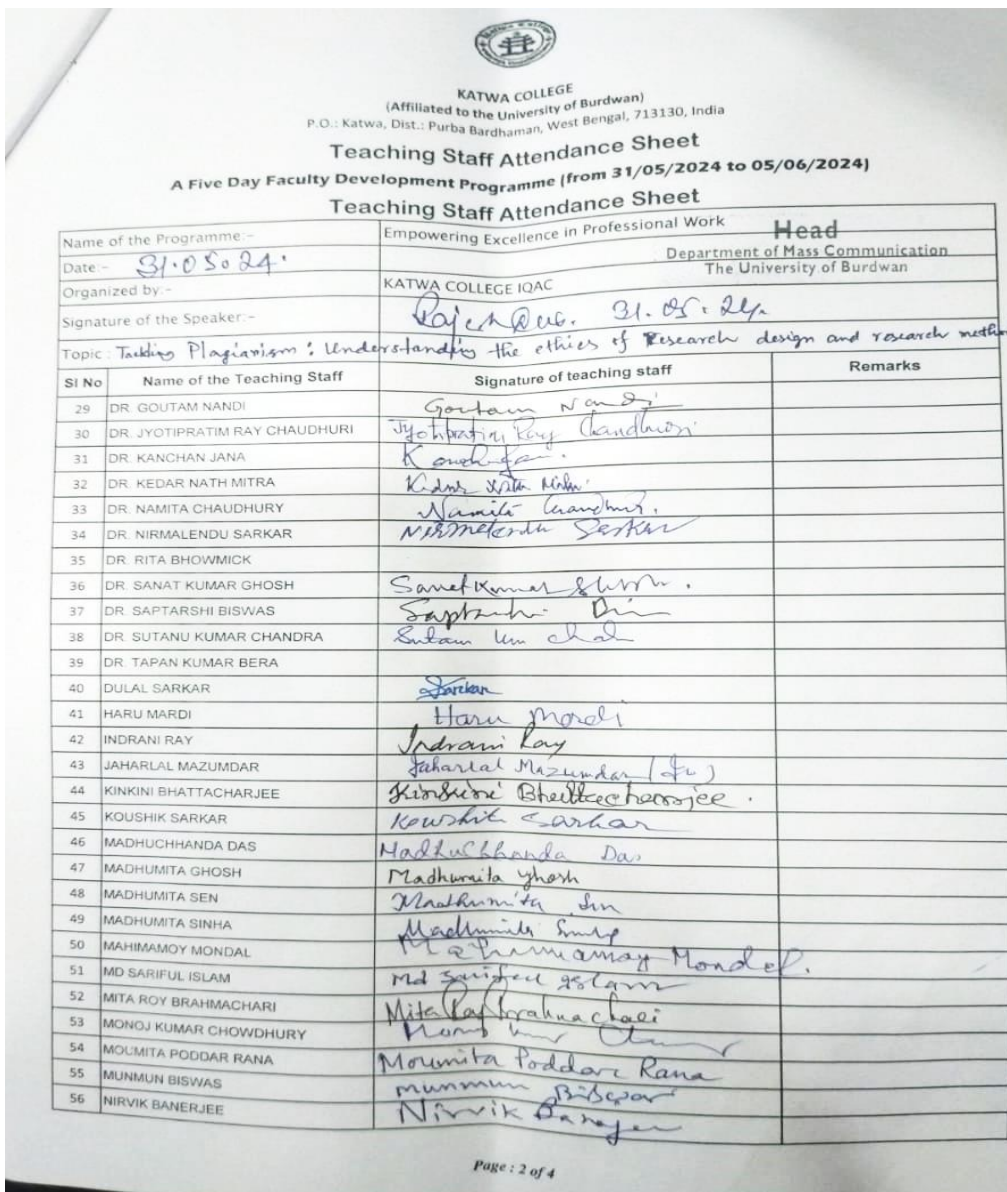 KATWA COLLEGE
(Affiliated to the University of Burdwan)
P.O.: Katwa, Dist.: Purba Bardhaman, West Bengal, 713130, India
Teaching Staff Attendance Sheet
A Five Day Faculty Development Programme (from 31/05/2024 to 05/06/2024)
Teaching Staff Attendance Sheet
Name of the Programme:- Empowering Excellence in Professional Work
Head
Department of Mass Communication
The University of Burdwan
Date:- 31.05.24.
Organized by:- KATWA COLLEGE IQAC
Signature of the Speaker:- Rajesh Das. 31.05.24.
Topic: Tackling Plagiarism: Understanding the ethics of Research design and research
Sl No Name of the Teaching Staff Signature of teaching staff Remarks
29 DR. GOUTAM NANDI Goutam Nandi
30 DR. JYOTIPRATIM RAY CHAUDHURI Jyotipratim Ray Chaudhuri
31 DR. KANCHAN JANA
32 DR. KEDAR NATH MITRA
33 DR. NAMITA CHAUDHURY Namita Chaudhury.
34 DR. NIRMALENDU SARKAR Nirmalendu Sarkar
35 DR. RITA BHOWMICK
36 DR. SANAT KUMAR GHOSH Sanat Kumar Ghosh.
37 DR. SAPTARSHI BISWAS
38 DR. SUTANU KUMAR CHANDRA
39 DR. TAPAN KUMAR BERA
40 DULAL SARKAR Sarkar
41 HARU MARDI Haru Mardi
42 INDRANI RAY Indrani Ray
43 JAHARLAL MAZUMDAR Jaharlal Mazumdar
44 KINKINI BHATTACHARJEE Kinkini Bhattacharjee.
45 KOUSHIK SARKAR Koushik Sarkar
46 MADHUCHHANDA DAS Madhuchhanda Das
47 MADHUMITA GHOSH Madhumita Ghosh
48 MADHUMITA SEN Madhumita Sen
49 MADHUMITA SINHA Madhumita Sinha
50 MAHIMAMOY MONDAL Mahimamoy Mondal.
51 MD SARIFUL ISLAM Md Sariful Islam
52 MITA ROY BRAHMACHARI Mita Roy Brahmachari
53 MONOJ KUMAR CHOWDHURY
54 MOUMITA PODDAR RANA Moumita Poddar Rana
55 MUNMUN BISWAS Munmun Biswas
56 NIRVIK BANERJEE Nirvik Banerjee
Page : 2 of 4